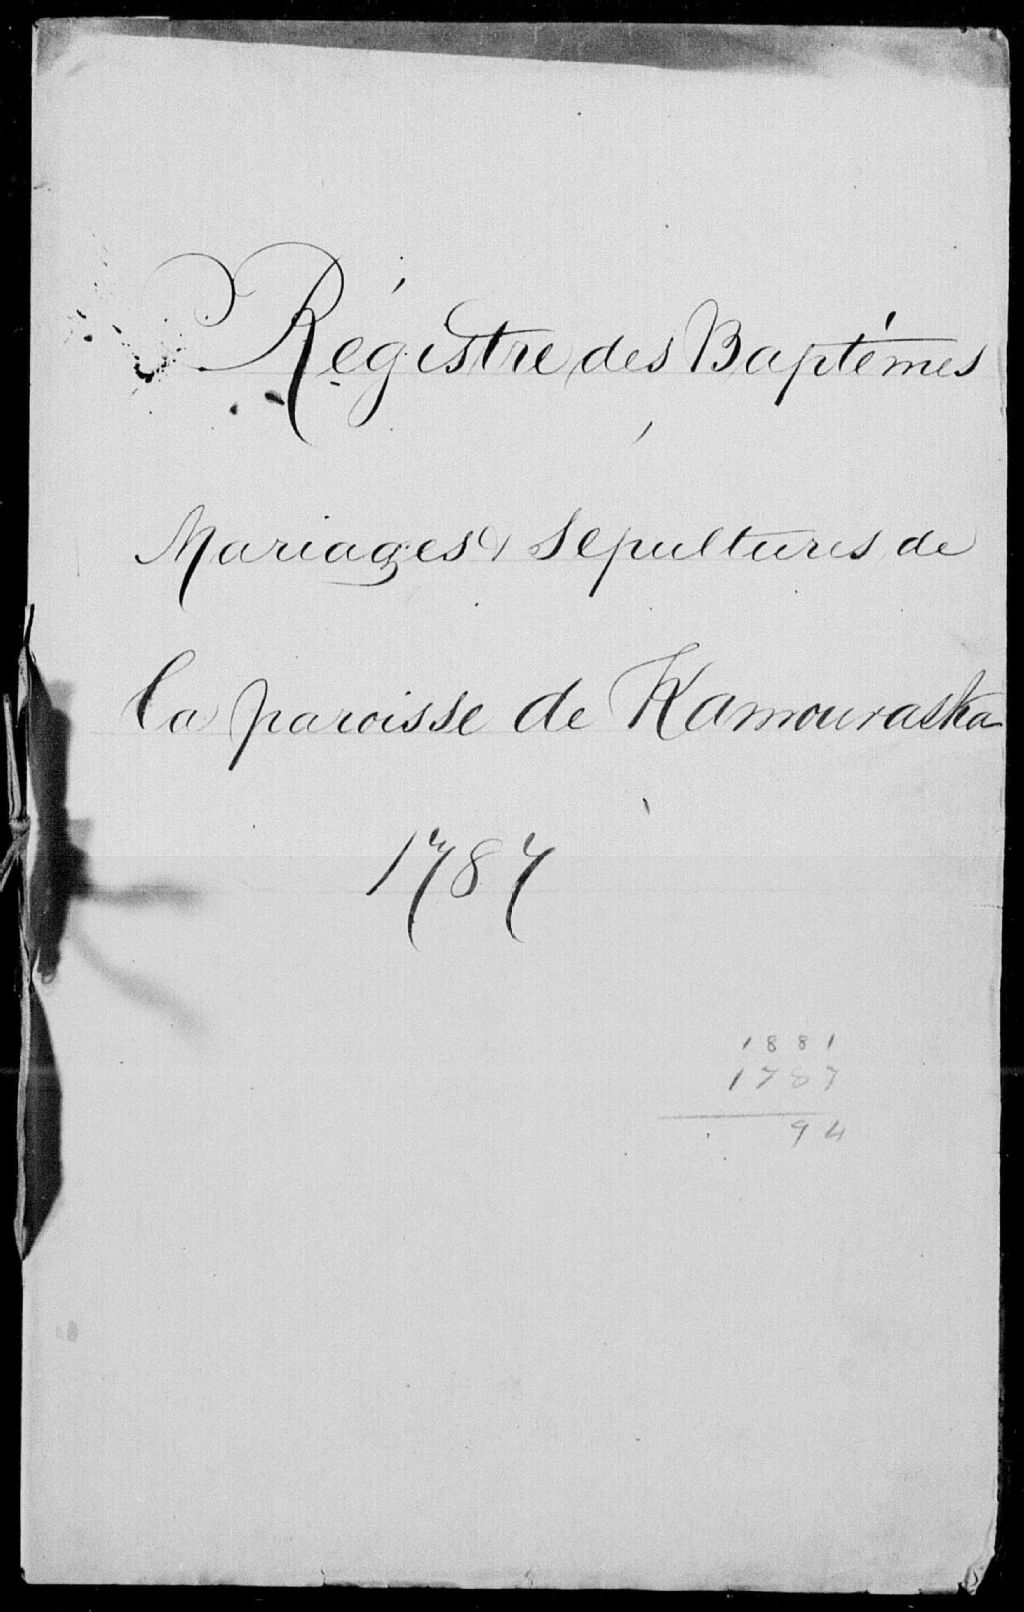 Régistre des Baptémes
Mariages & Sépultures de
la paroisse de Kamouraska
1787
1881
1787
94